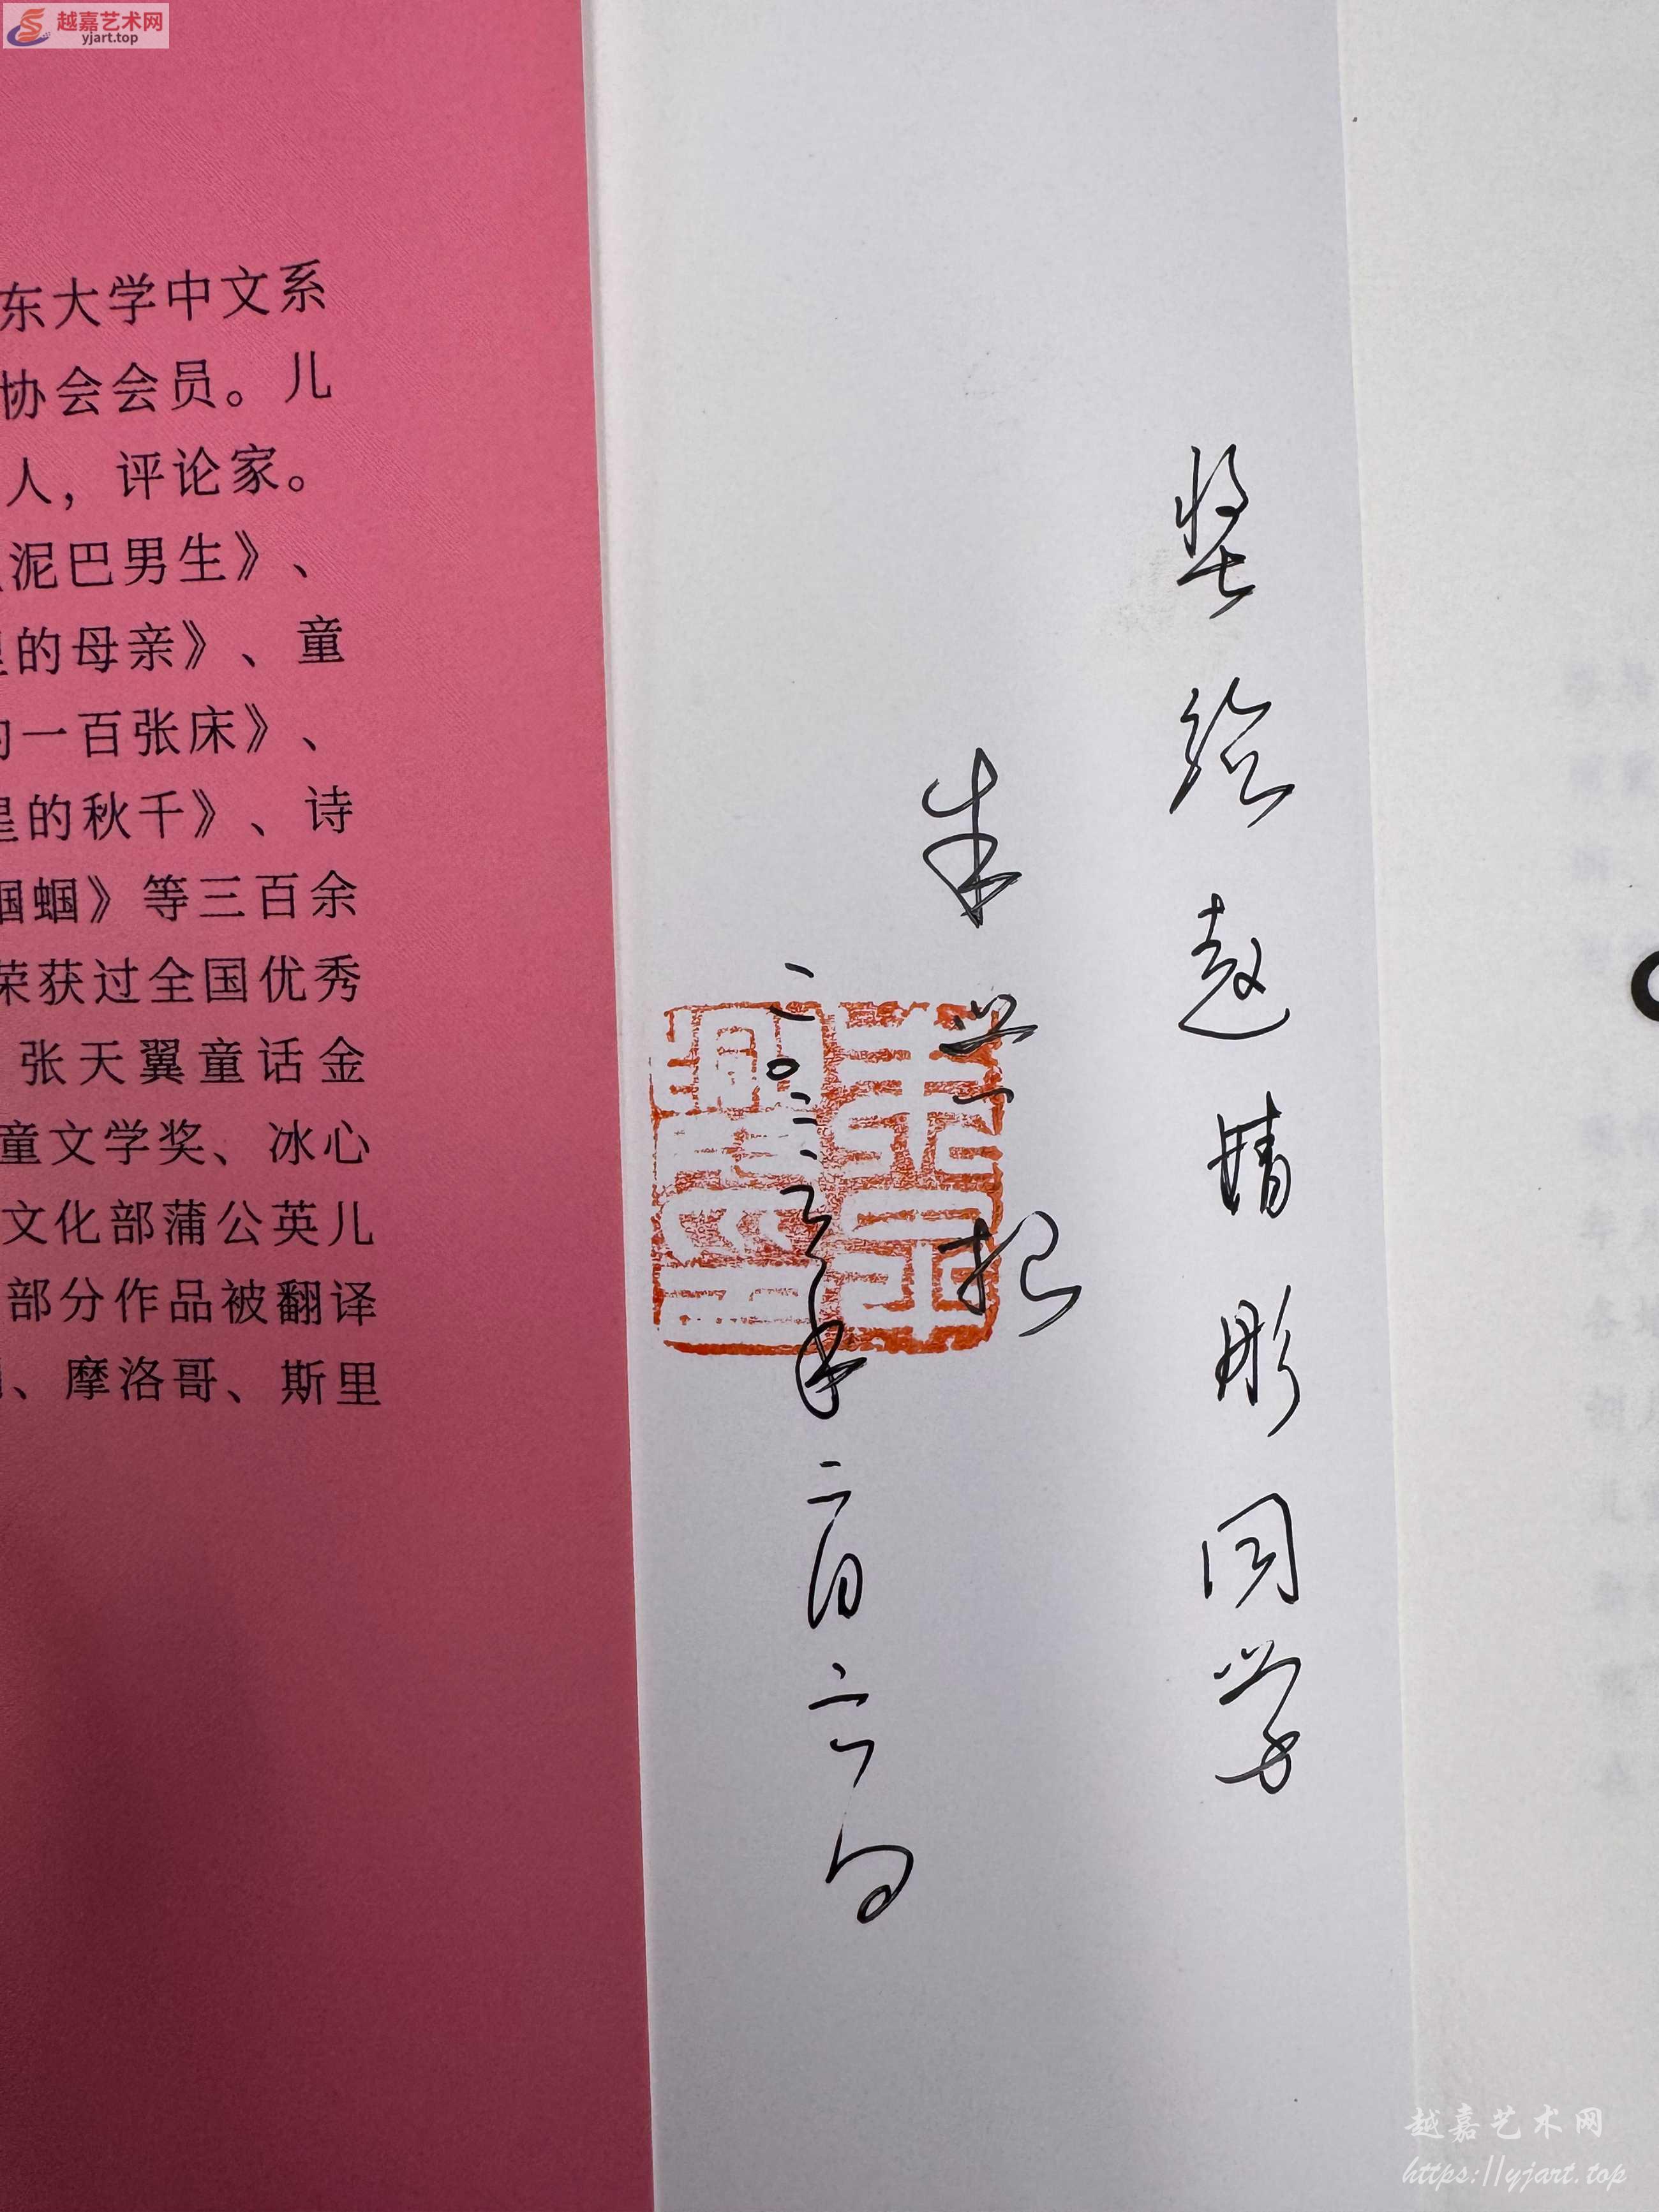 越嘉艺术网
yjart.top
东大学中文系
协会会员。儿
人，评论家。
泥巴男生》、
的母亲》、童
一百张床》、
的秋千》、诗
蝈》等三百余
荣获过全国优秀
张天翼童话金
童文学奖、冰心
文化部蒲公英儿
部分作品被翻译
、摩洛哥、斯里
奖给赵晴彤同学
朱
二〇二三年二月六日
越嘉艺术网
https://yjart.top